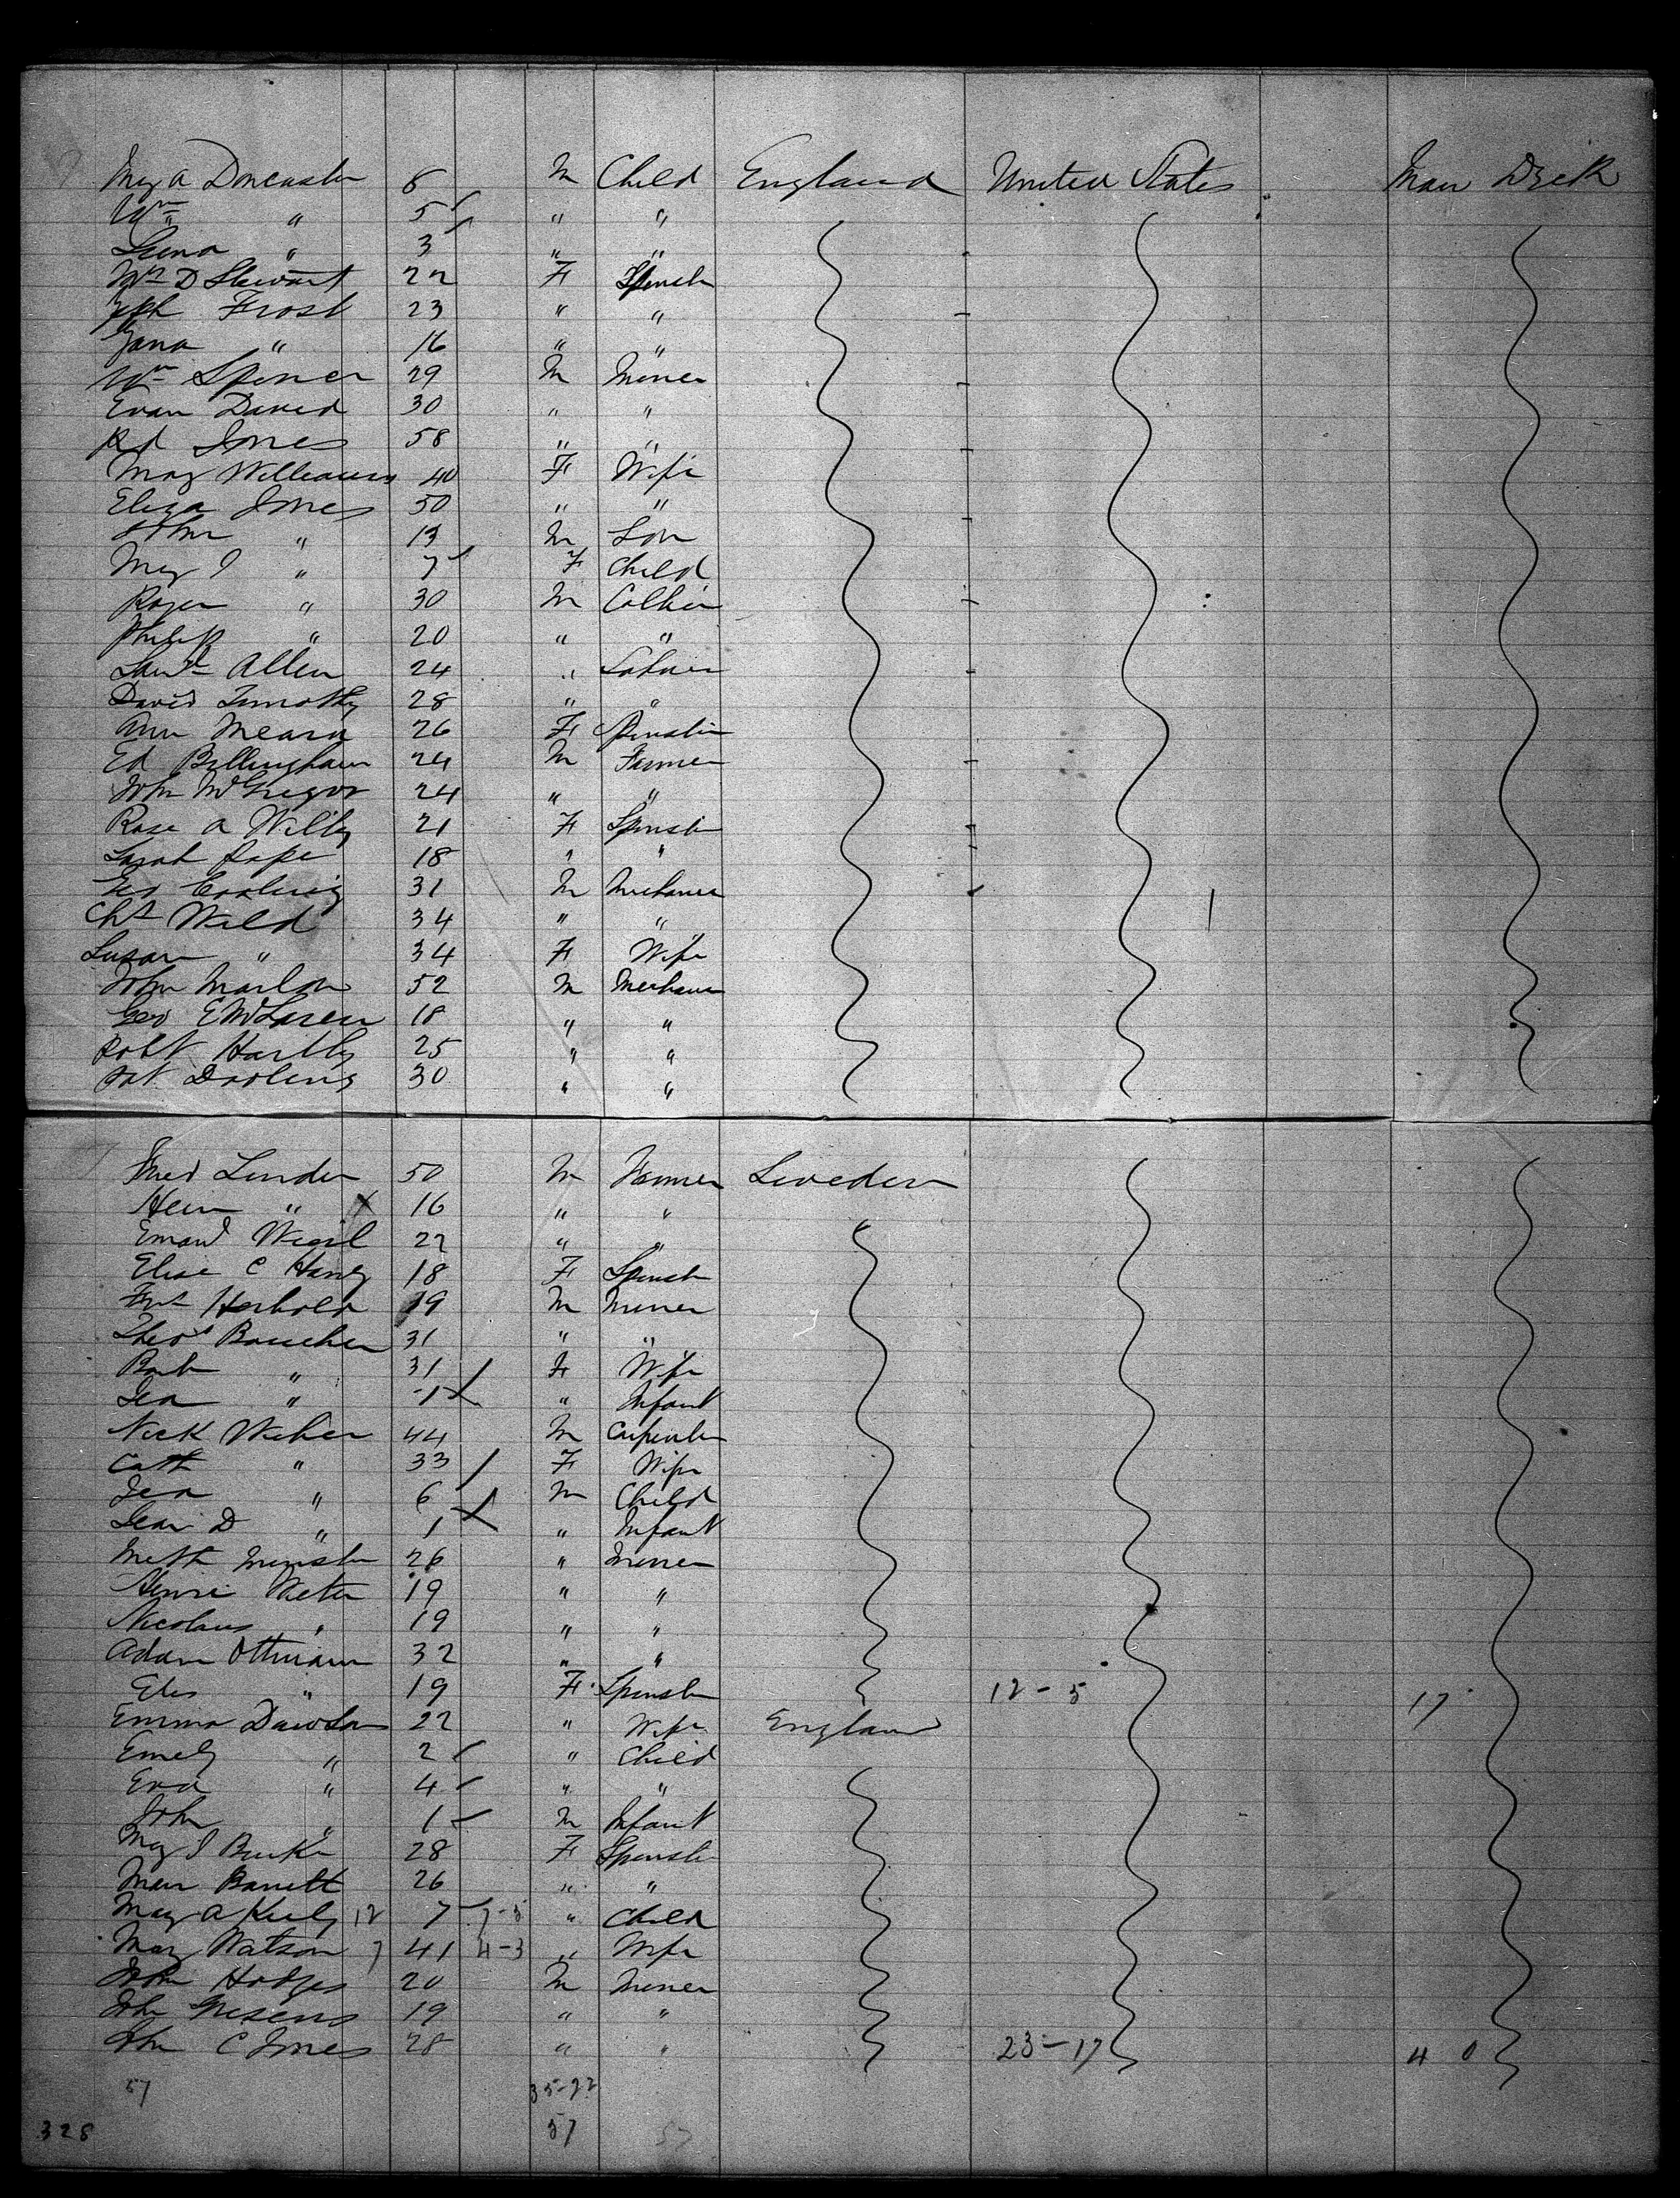 Mary A Doncaster 8 M Child England United States Main Deck
Wm " 5 " "
" 3 " "
D Stewart 22 F Spinster
Frost 23 " "
Jana " 16 " "
Wm Spencer 29 M Miner
Evan David 30 " "
Rd Jones 58 " "
Mary Williams 40 F Wife
Eliza Jones 50 " "
John " 13 M Son
Mary J " 7 F Child
Roger " 30 M Collier
Philip " 20 " "
Saml Allen 24 " Laborer
David Timothy 28 " "
Ann Meara 26 F Spinster
Ed Billingham 24 M Farmer
John McGregor 24 " "
Rose A Wilby 21 F Spinster
Sarah Pope 18 " "
Geo 31 M
Chs Wild 34 " "
Susan " 34 F Wife
John Marlow 52 M
Geo E McLaren 18 " "
Robt Hartly 25 " "
Pat Dooling 30 " "
Fred Linder 50 M Farmer Sweden
" X 16 " "
22 " "
Elise C 18 F Spinster
Herbold 19 M Miner
31 " "
Barb " 31 F Wife
" 1 " Infant
Nick Weber 44 M Carpenter
Cath " 33 F Wife
" 6 M Child
D " 1 " Infant
26 " Miner
Henri 19 " "
Nicolaus " 19 " "
Adam Ottmann 32 " "
Elis " 19 F Spinster 12-5 17
Emma Dawson 22 " Wife England
Emely " 2 " Child
Eva " 4 " "
John " 1 M Infant
Mary J Burke 28 F Spinster
Barrett 26 " "
Mary A 12 7 7-5 " Child
Mary Watson 7 41 4-3 " Wife
John Hodges 20 M Miner
John 19 " "
John C Jones 28 " " 23-17 4 0
57 35-22
328 57 57